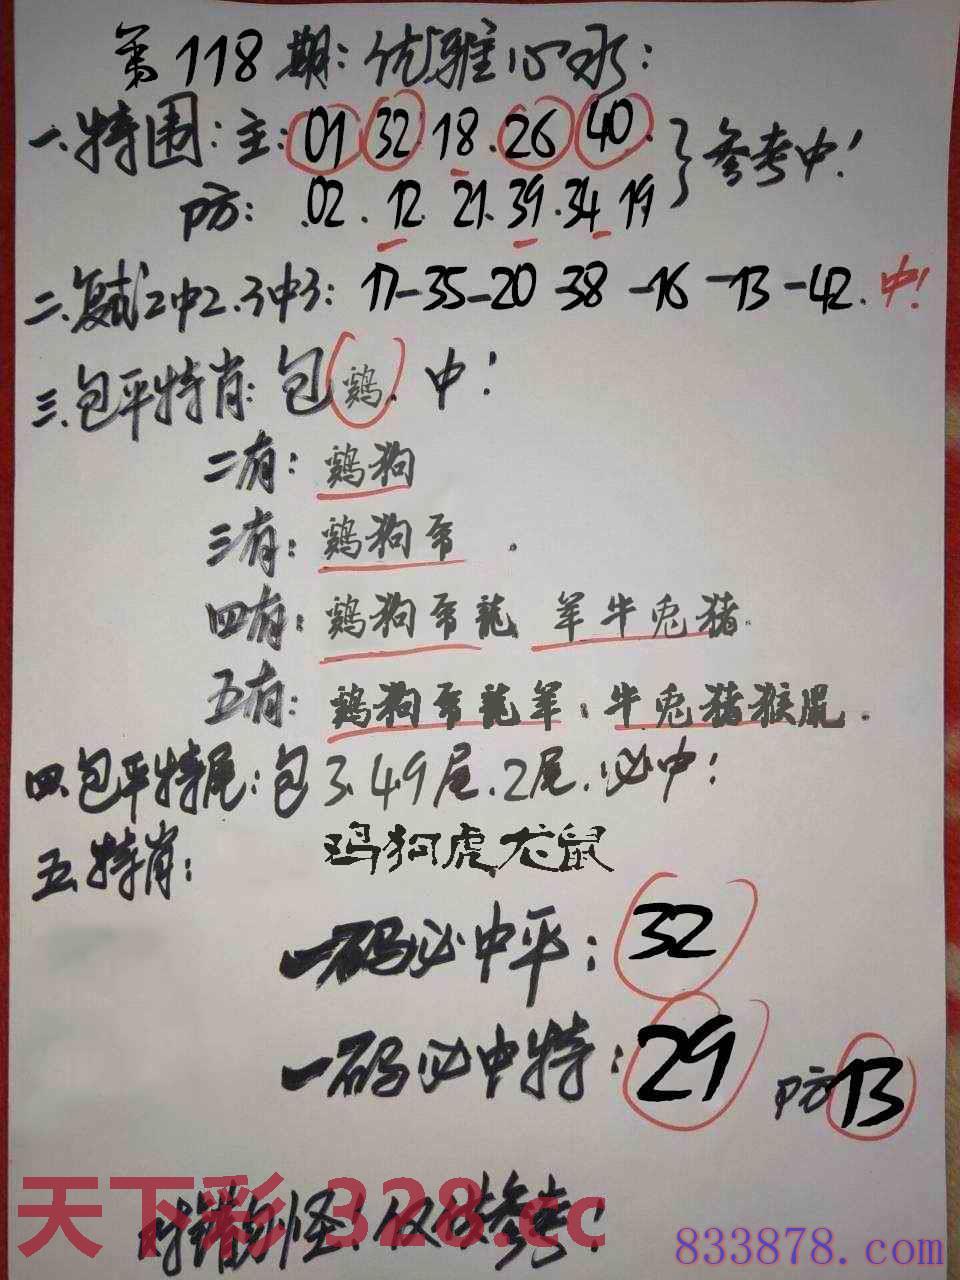 第118期:优雅心水:
一.特围:主:01 32 18.26 40. 参考中!
防: .02.12 21.39.34 19
二.复试2中2.3中3: 17-35-20 38-16-13-42. 中!
三.包平特肖:包鸡.中!
二有:鸡狗
三有:鸡狗虎.
四有:鸡狗虎龍 羊牛兎猪.
五有:鸡狗虎龍羊.牛兎猪猴鼠.
四.包平特尾:包3.4.9尾.2尾.必中!
五.特肖: 鸡狗虎龙鼠
一码必中平:32
一码必中特:29 防13
对错勿怪!仅供参考!
天下彩 328.cc
833878.com